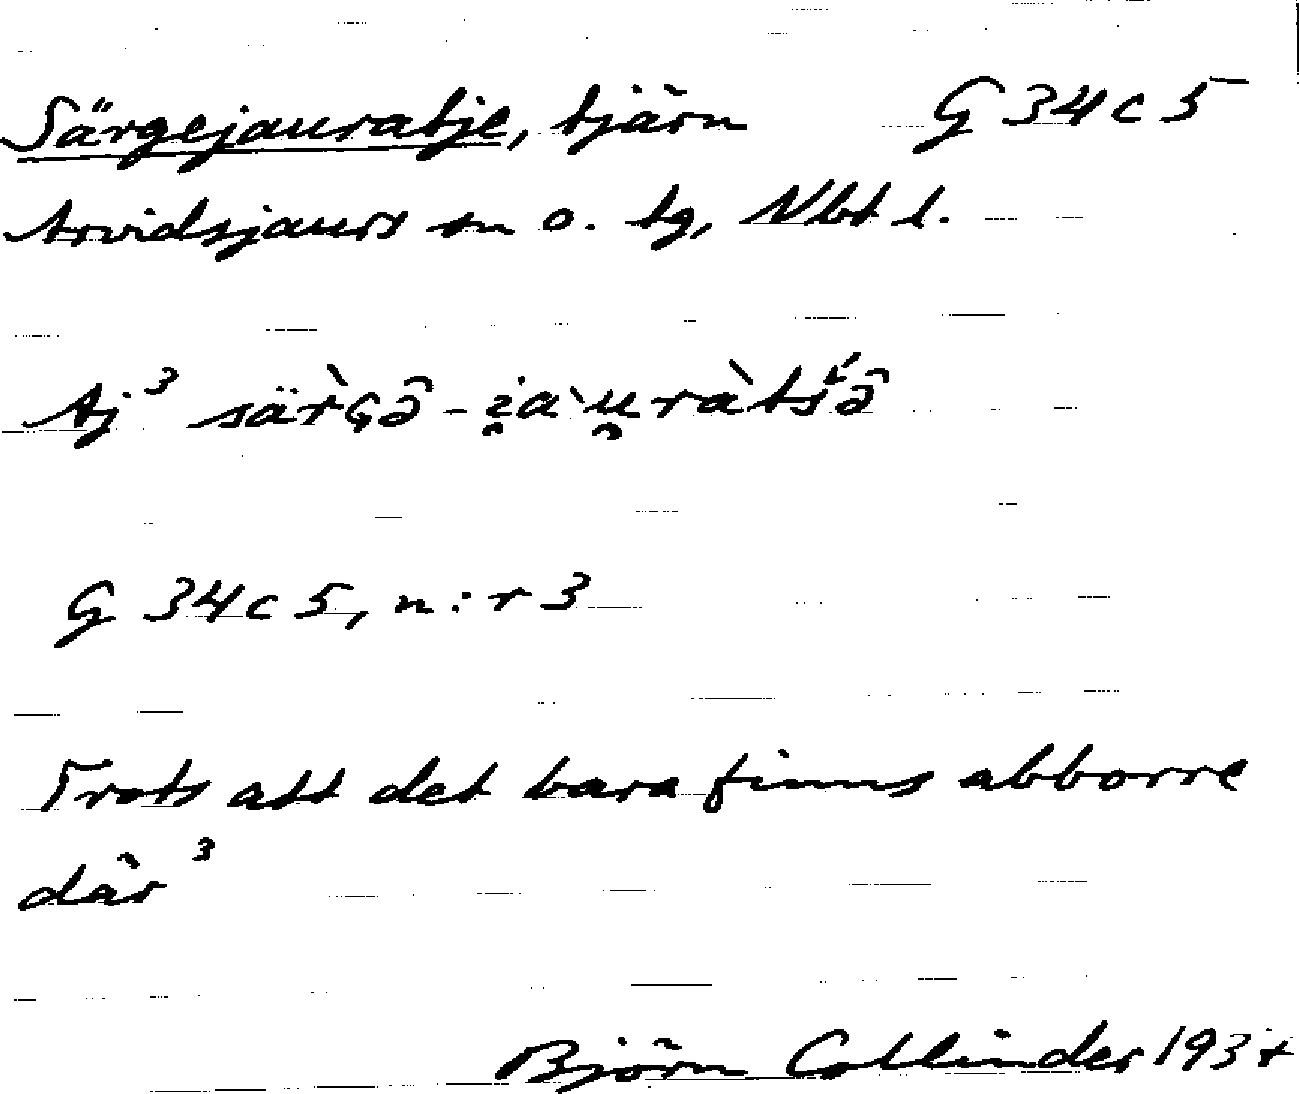 Särgejauratje, tjärn G 34 c 5
Arvidsjaurs sn o. tg, Nbt l.
Aj³ särgə̑-i̯a`u̯ràtś́ə̑
G 34 c 5, n:r 3
Trots att det bara finns abborre
där ³
Björn Collinder 193